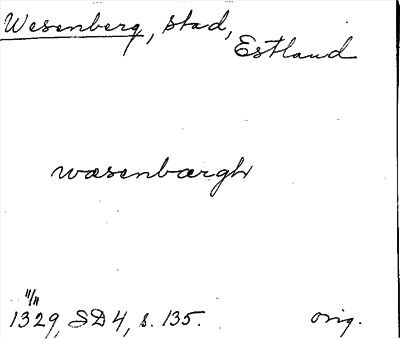 Wesenberg, stad,
Estland
wæsenbærgh
11/11
1329, SD 4, s. 135. orig.